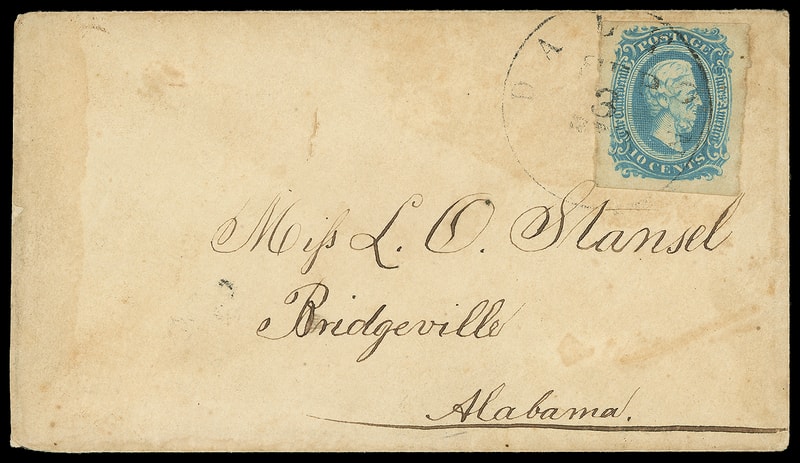 POSTAGE
The Confederate States of America
10 CENTS
DAL
Miſs L. O. Stansel
Bridgeville
Alabama.